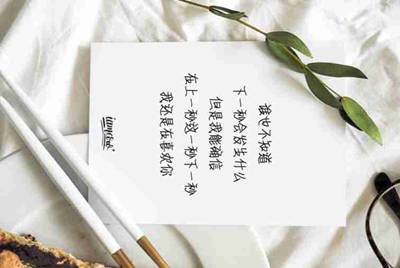 谁也不知道
下一秒会发生什么
但是我能确信
在上一秒这一秒下一秒
我还是在喜欢你